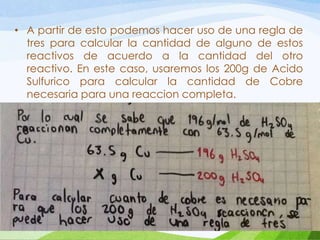 • A partir de esto podemos hacer uso de una regla de
tres para calcular la cantidad de alguno de estos
reactivos de acuerdo a la cantidad del otro
reactivo. En este caso, usaremos los 200g de Acido
Sulfurico para calcular la cantidad de Cobre
necesaria para una reaccion completa.
Por lo cual se sabe que 196g/mol de H₂SO₄
reaccionan completamente con 63.5 g/mol de
Cu.
63.5 g Cu — 196 g H₂SO₄
X g Cu — 200g H₂SO₄
Para calcular cuanto de cobre es necesario pa-
ra que los 200g de H₂SO₄ reaccionen, se
puede hacer uso de una regla de tres